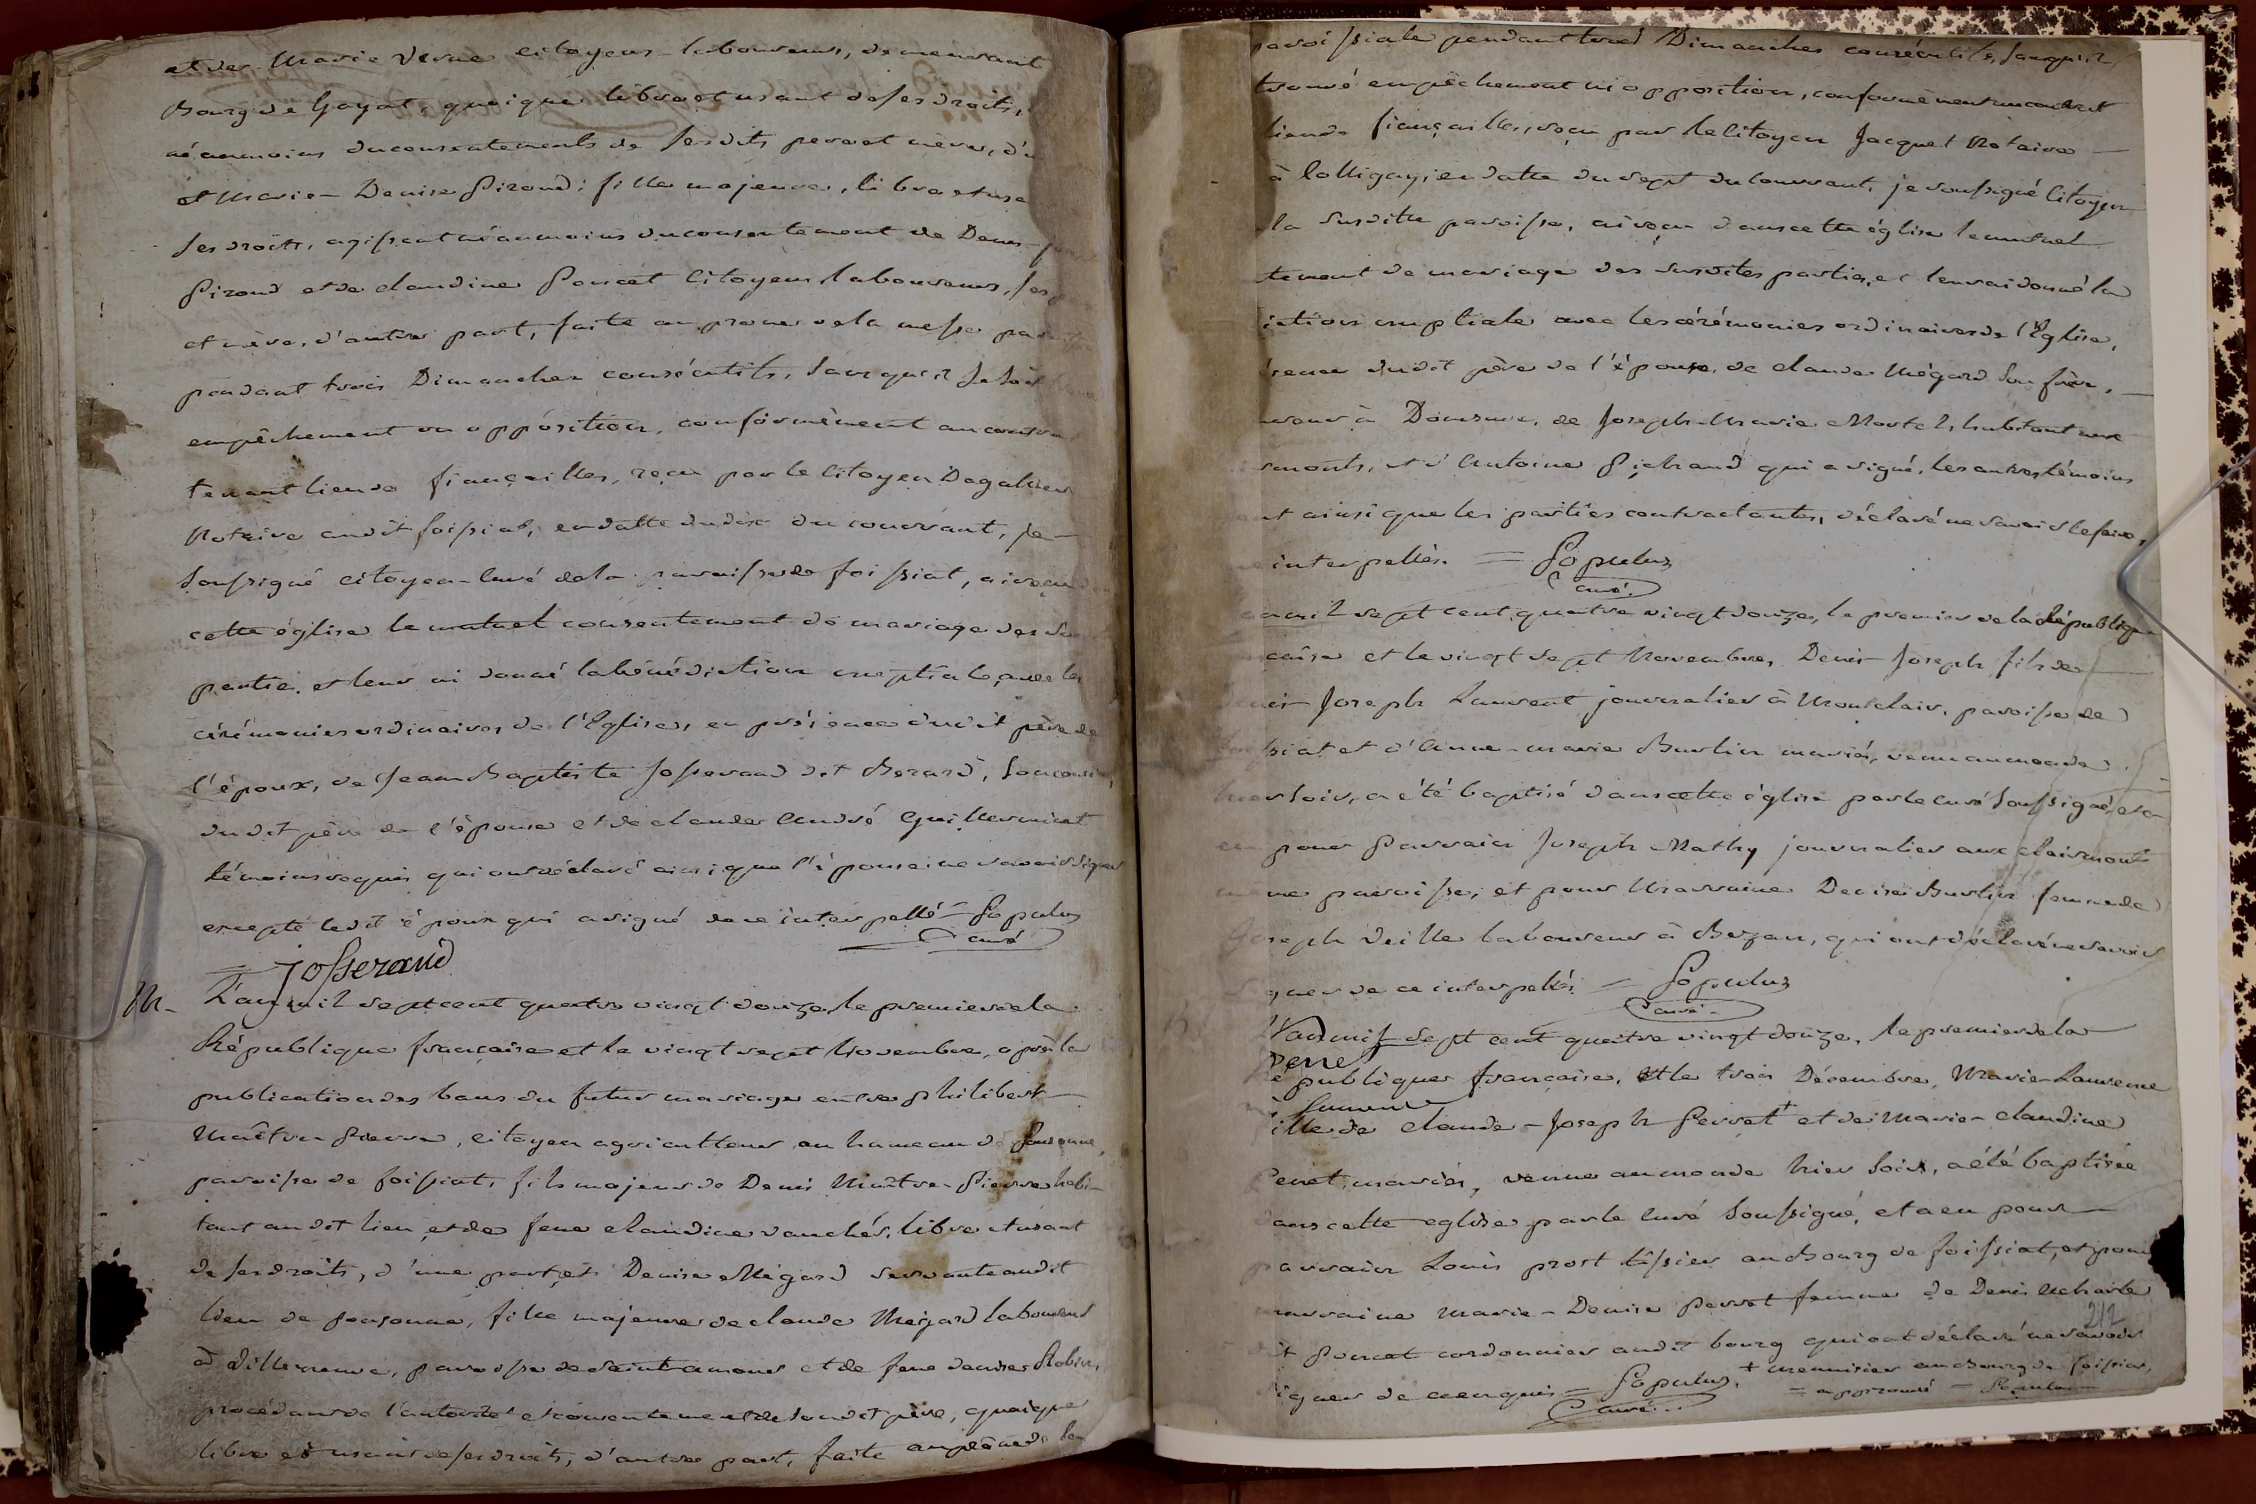 et de Marie Verne citoyens laboureurs, demeurant
Bourg de Gayat, quoique libre et usant de ses droits,
néanmoins du consentements de sesdits pere et mère, d'u
et Marie-Denise Piroud; fille majeure, libre et usa
ses droits, agissant néanmoins du consentement de Denis-
Piroud et de claudine Poncet citoyens laboureurs, ses
et mère, d'autre part, faite au prone de la messe par
pendant trois Dimanches consécutifs, sans qu'il se soit
empêchement ou opposition, conformèment au contrat
tenant lieu de fiançailles, reçu par le citoyen Dagallier
Notaire audit foissiat, en datte du dix du courrant, je
soussigné citoyen-curé de la paroisse de foissiat, ai reçu
cette église le mutuel consentement de mariage des su
partie, et leur ai donné la bénédiction nuptiale, avec les
cérémonies ordinaires de l'Eglise, en présence dudit père de
l'époux, de Jean Baptiste Josserand dit Berard, son cousin,
dudit père de l'épouse et de claude André Guillerminet
témoins requis qui ont déclaré ainsi que l'épouse ne savoir signer
excepté ledit époux qui a signé de ce interpellé = Populus
curé
= Josserand
M.- L'an mil sept cent quatre vingt douze, le premier de la
République française et le vingt sept Novembre, après la
publication des bans du futur mariage entre philibert
Maître Pierre, citoyen agriculteur au hameau de fonsonne,
paroisse de foissiat, fils majeur de Denis Maître-Pierre habi-
tant audit lieu, et de feue claudine vauché, libre et usant
de ses droits, d'une part, et Denise Mégard servante audit
lieu de fonsonne, fille majeure de claude Mégard laboureur
à Villeneuve, paroisse de saint amour et de feue denise Robin,
procédant de l'autorité et consentement de sondit père, quoique
libre et usant de ses droits, d'autre part, faite au prône de la
paroissiale pendant trois Dimanches consécutifs, sans qu'il
trouvé empêchement ni opposition, conformément au contrat
lieu de fiançailles, reçu par le citoyen Jacquet Notaire
à Colligny, en datte du sept du courrant, je soussigné citoyen
la susditte paroisse, ai reçu dans cette église le mutuel
tement de mariage des susdites parties, et leur ai donné la
iction nuptiale avec les cérémonies ordinaires de l'Eglise,
ésence dudit père de l'épouse, de claude Mégard son frère,
à Domsure, de Joseph-Marie Morel, habitant aux
monts, et d'Antoine Pichaud qui a signé, les autres témoins
ont ainsi que les parties contractantes, déclaré ne savoir le faire,
interpellés. = Populus
curé.
an mil sept cent quatre vingt douze, le premier de la République
çaise et le vingt sept Novembre, Denis-Joseph fils de
Denis-Joseph Laurent journalier à Montclair, paroisse de
foissiat et d'Anne-marie Burlin mariés, venu au monde
hier soir, a été baptisé dans cette église par le curé soussigné, et a
eu pour Parrain Joseph Mathy journalier aux clairmonts
même paroisse, et pour Marraine Denise Burlin femme de
Joseph Veille laboureur à Bezan, qui ont déclaré ne savoir
signer de ce interpellés = Populus
curé.
L'an mil sept cent quatre vingt douze, le premier de la
perret
République française, et le trois Décembre, Marie-Laurence
fille de claude-Joseph Perret+ et de Marie-claudine
Penet, mariés, venue au monde hier soir, a été baptisée
dans cette eglise par le curé soussigné, et a eu pour
parrain Louis prost tissier au Bourg de foissiat, et pour
marraine Marie-Denise perret femme de Denis Ucharle
212
dit Poncet cordonnier audit bourg qui ont déclaré ne savoir
signer de ce enquis = Populus. + menuisier au bourg de foissiat,
curé. = approuvé = Populus